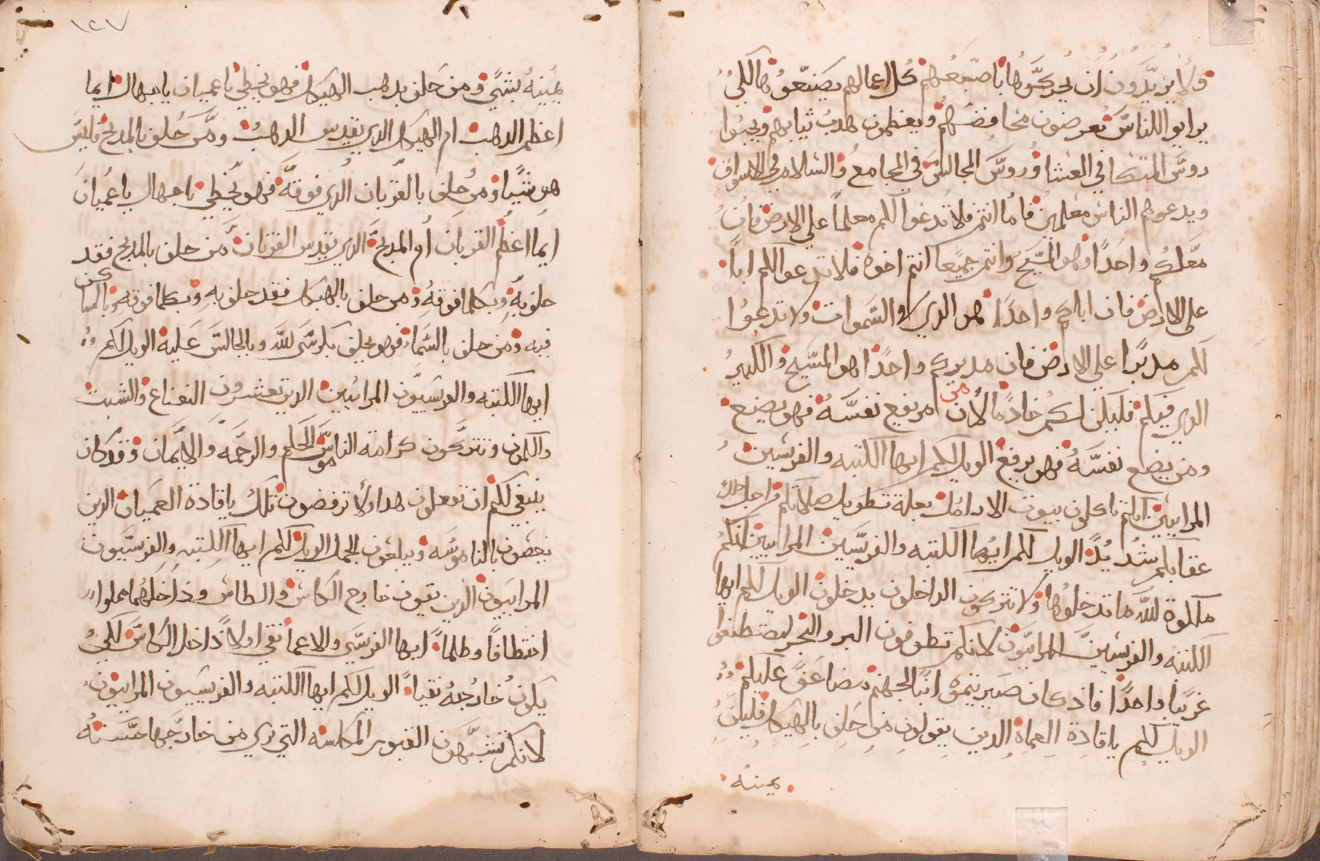 ولا يريدون ان يحركوها باصبعهم كل اعمالهم يصنعونها لكي
يرايوا للناس يعرضون مخافضهم ويعظمون هدب ثيابهم ويحبوا
روس المتكا في العشا وروس المجالس في المجامع والسلام في الاسواق
ويدعوهم الناس معلمين فاما انتم فلا تدعوا لكم معلما على الارض فان
معلمكم واحدا فهو المسيح وانتم جميعا انتم اخوه فلا تدعوا لكم ابا
على الارض فان اباكم واحدا هو الدي في السموات ولا تدعوا
لكم مدبرا على الارض فان مدبركم واحدا هو المسيح والكبير
الدي فيكم فليكن لكم خادما لان من يرفع نفسه فهو يضع
ومن يضع نفسه فهو يرفع الويل لكم ايها الكتبه والفريسين
المرايين انكم تاكلون بيوت الارامل بعلة تطويل صلاتكم فمن اجل دلك
عقابكم يشد بدا الويل لكم ايها الكتبه والفريسين المرايين لانكم
ملكوة الله ما تدخلوها ولا تتركون الداخلون يدخلون الويل لكم ايها
الكتبه والفريسين المرايون لانكم تطوفون البر والبحر لتصطنعوا
غريبا واحدا فادا كان صيرتموه ابنا لجهنم مضاعفا عليكم
الويل لكم يا قادة العماة الدين يقولون من حلف بالهيكل فليس
يمينه
١٢٧
يمينه بشي ومن حلف بدهب الهيكل فهو يخطي يا عميان يا جهال ايما
اعظم الدهب ام الهيكل الدي يقدس الدهب ومن حلف بالمدبح فليس
هو شيا ومن حلف بالقربان الدي فوقه فهو يخطي يا جهال يا عميان
ايما اعظم القربان ام المدبح الدي يقدس القربان من حلف بالمدبح فقد
حلف به وبكلما فوقه ومن حلف بالهيكل فقد حلف به وبكلما فوقه وبالساكن
فيه ومن حلف بالسماء فهو يحلف بكرسي الله وبالجالس عليه الويل لكم
ايها الكتبه والفريسيون المرايين الدين تعشرون النعناع والشبت
والكمون وتتركون كرامة الناموس الحكم والرحمه والايمان وقد كان
ينبغي لكم ان تفعلون هدا ولا ترفضون تلك يا قادة العميان الدين
يعصون بالناموسه ويبلعون الجمل الويل لكم ايها الكتبه والفريسيون
المراييون الدين ينقون خارج الكاس والطاس وداخلهما مملوا
اختطافا وظلما ايها الفريسي والاعما نقي اولا داخل الكاس لكي
يكون خارجه نقيا الويل لكم ايها الكتبه والفريسيون المراييون
لانكم تتشبهون القبور المكلسه التي تري من خارجها حسنه